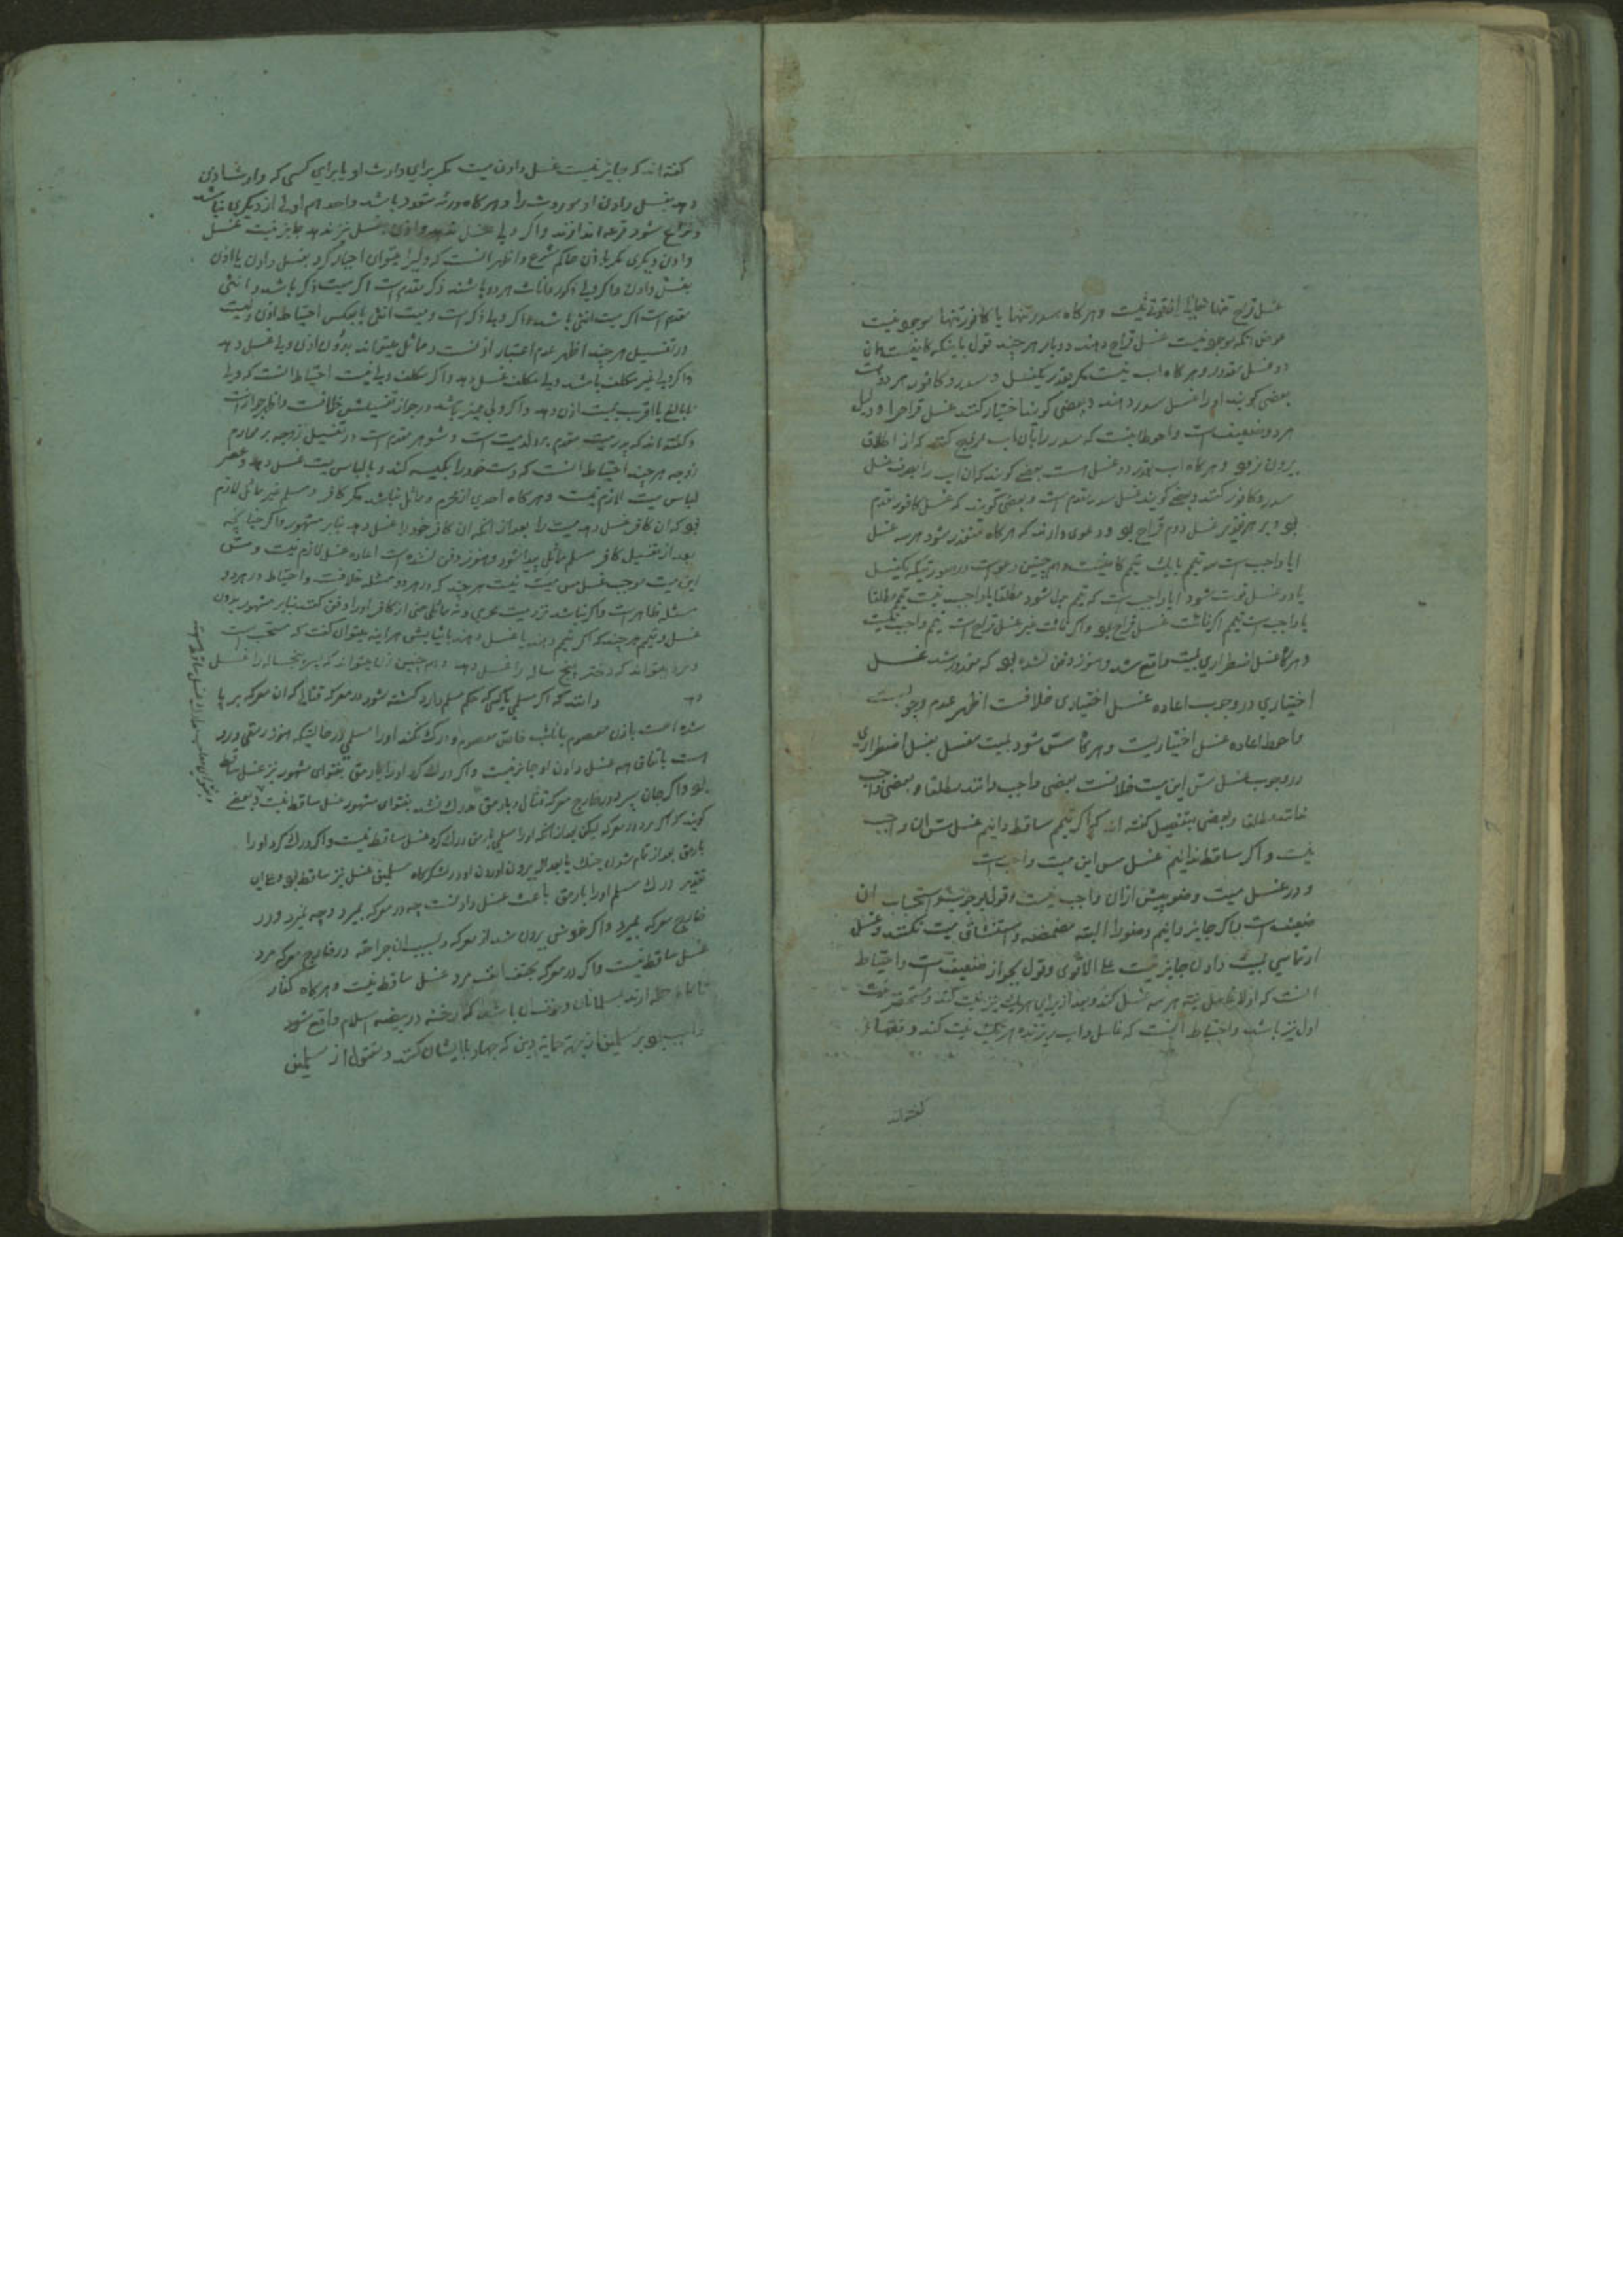 غسل قراح تنها خالی از قوتی نیست و هرگاه سدر تنها یا کافور تنها موجود نیست
عوض آنکه موجود نیست غسل قراح دهند دوبار هر چند قول باینکه کافیست همان
دو غسل مقدور و هرگاه آب نیست مگر بقدر یکغسل و سدر و کافور هر دو هست
بعضی گویند او را غسل سدر دهند و بعضی گویند اختیار کنند غسل قراح را و دلیل
هر دو ضعیف است و احوط اینست که سدر را بآن آب مزج کنند که از اطلاق
بیرون نرود و هرگاه آب بقدر دو غسل است بعضی گویند که آن آب را بصرف غسل
سدر و کافور کنند و بعضی گویند غسل سدر مقدم است و بعضی گویند که غسل کافور مقدم
بود و بر هر تقدیر غسل دوم قراح بود و دعوی دارند که هرگاه متعذر شود هر سه غسل
آیا واجب است سه تیمم یا یک تیمم کافیست و همچنین در صورتیکه یکغسل
یا دو غسل فوت شود آیا واجب است که تیمم بدل شود مطلقا یا واجب نیست تیمم مطلقا
یا واجب است تیمم اگر فائت غسل قراح بود و اگر فائت غیر غسل قراح است تیمم واجب نیست
و هرگاه غسل اضطراری بمیت واقع شد و هنوز دفن نشده بود که مقدور شد غسل
اختیاری در وجوب اعاده غسل اختیاری خلافست اظهر عدم وجوبست
و احوط اعاده غسل اختیاریست و هرگاه مس شود میت مغسل بغسل اضطراری
در وجوب غسل مس این میت خلافست بعضی واجب دانند مطلقا و بعضی واجب
ندانند مطلقا و بعضی بتفصیل گفته اند که اگر تیمم ساقط دانیم غسل مس آن واجب
نیست و اگر ساقط ندانیم غسل مس این میت واجب است
و در غسل میت وضو پیش از آن واجب نیست و قول بوجوب و استحباب آن
ضعیف است و اگر جایز دانیم وضو را البته مضمضه و استنشاق میت نکنند و غسل
ارتماسی میت دادن جایز نیست علی الاقوی و قول بجواز ضعیف است و احتیاط
آنست که اولا نیت هر سه غسل کند و بعد از برای هر یک نیز نیت کند و مستحضر نیت
اول نیز باشد و احتیاط اینست که غاسل و آب ریزنده هر یک نیت کند و فقها
گفته اند
گفته اند که جایز نیست غسل دادن میت مگر برای وارث او یا برای کسی که وارث اذن
دهد بغسل دادن او موروث را و هرگاه ورثه متعدد باشد و احد هم اولی از دیگری نباشد
و نزاع شود قرعه اندازند و اگر ولی غسل ندهد و اذن غسل نیز ندهد جایز نیست غسل
دادن دیگری مگر باذن حاکم شرع و اظهر آنست که ولی را میتوان اجبار کرد بغسل دادن یا اذن
بغسل دادن و اگر ولی ذکور و اناث هر دو باشند ذکر مقدم است اگر میت ذکر باشد و انثی
مقدم است اگر میت انثی باشد و اگر ولی ذکر است و میت انثی یا بعکس احتیاط اذن ولیست
در تغسیل هر چند اظهر عدم اعتبار اذنست و مماثل میتواند بدون اذن ولی غسل دهد
و اگر ولی غیر مکلف باشد ولی مکلف غسل دهد و اگر مکلف ولی نیست احتیاط آنست که ولی
نابالغ یا اقرب بمیت اذن دهد و اگر ولی ممیز باشد در جواز تغسیلش خلافست و اظهر جواز است
و گفته اند که پدر میت مقدم بر ولد میت است و شوهر مقدم است در تغسیل زوجه بر محارم
زوجه هر چند احتیاط آنست که دست خود را بکیسه کند و با لباس میت غسل دهد و عصر
لباس میت لازم نیست و هرگاه احدی از محرم و مماثل نباشد مگر کافر و مسلم غیر مماثل لازم
بود که آن کافر غسل دهد میت را بعد از آنکه آن کافر خود را غسل دهد بنابر مشهور و اگر چنانچه
بعد از تغسیل کافر مسلم مماثل پیدا شود و هنوز دفن نشده است اعاده غسل لازم نیست و مس
این میت موجب غسل مس میت نیست هر چند که در هر دو مسئله خلافست و احتیاط در هر دو
مسئله ظاهر است و اگر نباشد نزد میت محرمی و نه مماثلی حتی از کافر او را دفن کنند بنابر مشهور بدون
غسل و تیمم هر چند که اگر تیمم دهند یا غسل دهند با ثیابش هر آینه میتوان گفت که مستحب است
و مرد میتواند که دختر پنج ساله را غسل دهد و همچنین زن میتواند که پسر پنجساله را غسل
دهد و دانند که اگر مسلمی یا کسی که حکم مسلم دارد کشته شود در معرکه قتالی که آن معرکه بر پا
شده است باذن معصوم یا نائب خاص معصوم و درک نکند او را مسلمی در حالتیکه هنوز رمقی در او
است باتفاق همه غسل دادن او جایز نیست و اگر درک کرد او را با رمق بفتوای مشهور نیز غسل ساقط
بود و اگر جان سپرد در خارج معرکه قتال و با رمق مدرک نشد بفتوای مشهور غسل ساقط نیست و بعضی
گویند که اگر مرد در معرکه لیکن بعد از آنکه او را مسلمی با رمق درک کرد غسل ساقط نیست و اگر درک کرد او را
با رمق بعد از تمام شدن جنگ یا بعد از بیرون آوردن او در لشکرگاه مسلمین غسل نیز ساقط بود و علی ای
تقدیر درک مسلم او را با رمق باعث غسل دادنست چه در معرکه بمیرد و چه نمیرد و در
خارج معرکه بمیرد و اگر خودش بیرون شد از معرکه و بسبب آن جراحت در خارج معرکه مرد
غسل ساقط نیست و اگر در معرکه بحتف انفه مرد غسل ساقط نیست و هرگاه کفار
حمله آرند بمسلمانان و خوف آن باشد که رخنه در بیضه اسلام واقع شود
واجب بود بر مسلمین از جهت حمایت دین که جهاد با ایشان کنند و مقتول از مسلمین